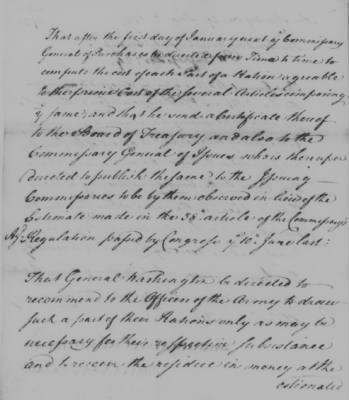 That after the first day of January next ye Commissary
General of Purchases be directed from Time to time to
compute the cost of each Part of a Ration agreable
to the prime Cost of the several Articles composing
ye same; and that he send a Certificate thereof
to the Board of Treasury and also to the
Commissary General of Issues who is thereupon
directed to publish the same to the Issuing
Commissaries to be by them observed in lieu of the
Estimate made in the 38th article of the Commissary's
Regulation passed by Congress ye 10th June last:
That General Washington be directed to
recommend to the Officers of the Army to draw
such a part of their Rations only as may be
necessary for their respective Subsistance
and to receive the residue in money at the
estimated